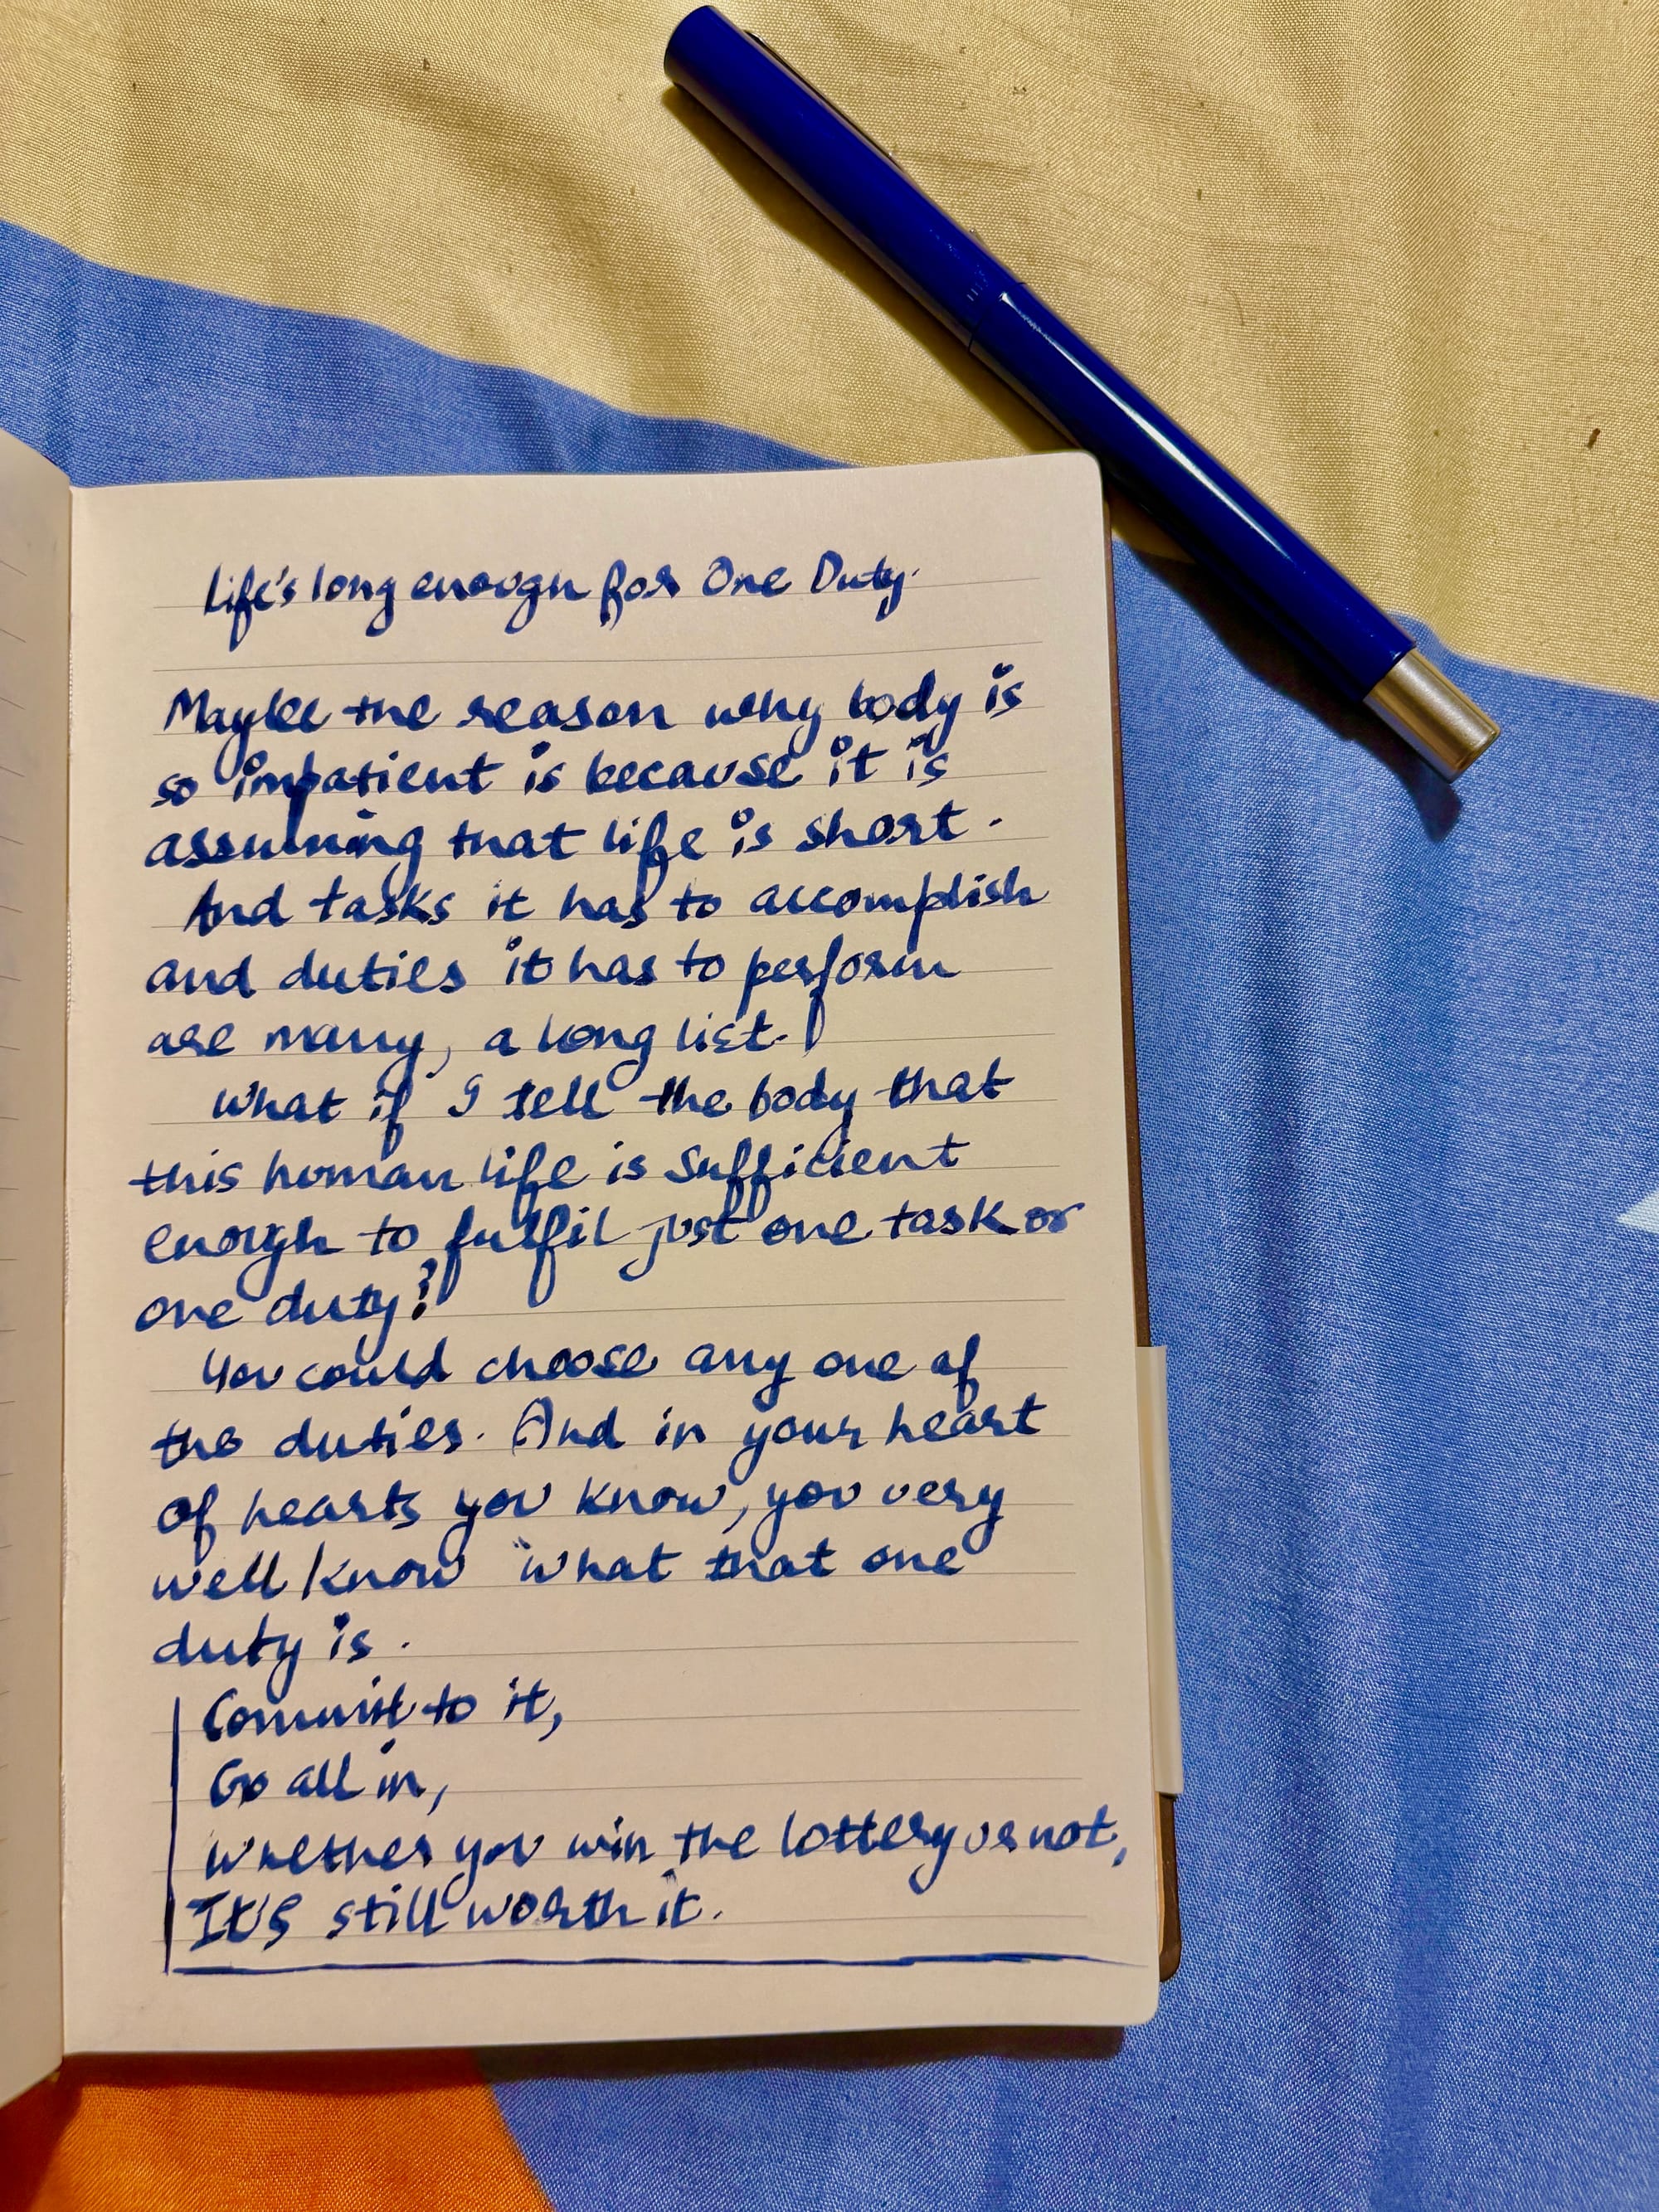 Life's long enough for One Duty.
Maybe the reason why body is
so impatient is because it is
assuming that life is short.
And tasks it has to accomplish
and duties it has to perform
are many, a long list.
What if I tell the body that
this human life is sufficient
enough to fulfil just one task or
one duty?
You could choose any one of
the duties. And in your heart
of hearts you know, you very
well know what that one
duty is.
Commit to it,
Go all in,
Whether you win the lottery or not,
It's still worth it.